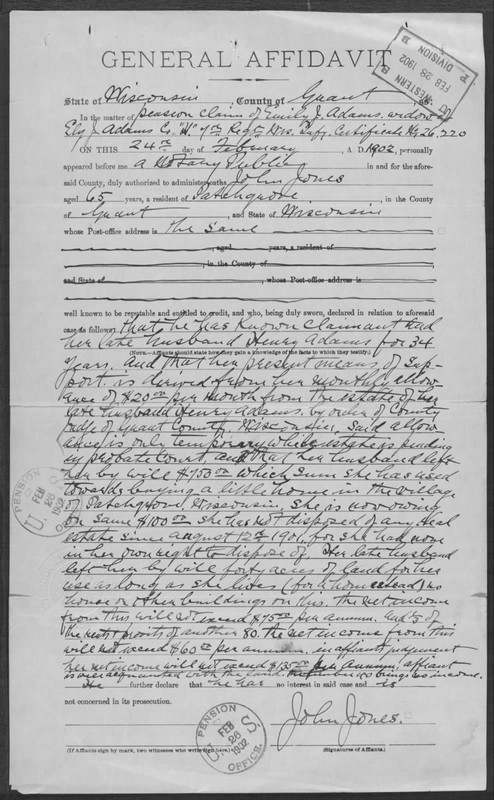 GENERAL AFFIDAVIT
WESTERN DIVISION
FEB 28 1902
State of Wisconsin, County of Grant, ss:
In the matter of Pension Claim of Emily J. Adams. widow
Ely J. Adams Co. "H" 7th Regt. Wis. Infy. Certificate No 26,220
ON THIS 24th day of February, A. D. 1902, personally
appeared before me a Notary Public in and for the afore-
said County, duly authorized to administer oaths John Jones
aged 65 years, a resident of Patchgrove, in the County
of Grant, and State of Wisconsin
whose Post-office address is The Same
, aged years, a resident of
, in the County of
and State of , whose Post-office address is
well known to be reputable and entitled to credit, and who, being duly sworn, declared in relation to aforesaid
case as follows: That he has Known claimant and
her late husband Henry Adams for 34
(NOTE.—Affiants should state how they gain a knowledge of the facts to which they testify.)
years. and that her present means of sup-
port. is derived from her monthly allow
ance of $20.00 per month from the estate of her
late husband Henry Adams. by order of County
Judge of Grant County, Wisconsin, said allow
ance is only temporary while estate is pending
in probate court and that her husband left
her by will $750.00 which sum she has used
towards buying a little home in the village
of Patchgrove, Wisconsin, she is now owing
on same $100.00 she has not disposed of any real
estate since august 12th 1901, for she had none
in her own right to dispose of. Her late husband
left her by will forty acres of land for her
use as long as she lives (for a homestead) no
house or other buildings on this. the net income
from this will not exceed $75.00 per annum. and 1/3 of
the rents profits of another 80. the net income from this
will not exceed $60.00 per annum, in affiants judgement
her net income will not exceed $135.00 per annum. affiant
is well acquainted with the land. brings no income.
He further declare that he has no interest in said case and is
not concerned in its prosecution.
John Jones.
(If Affiants sign by mark, two witnesses who write sign here.)
(Signatures of Affiants.)
U. S. PENSION OFFICE.
FEB 26 1902
U. S. PENSION
FEB 26 1902